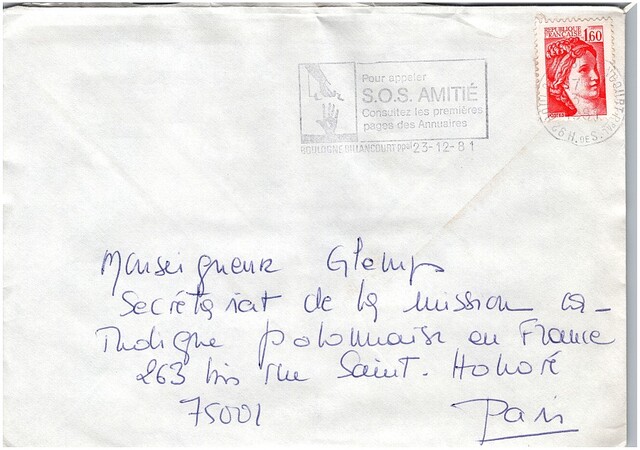 REPUBLIQUE
FRANÇAISE
1,60
Pour appeler
S.O.S. AMITIÉ
Consultez les premières
pages des Annuaires
BOULOGNE BILLANCOURT PPAL 23-12-81
92 H. DE S.
Monseigneur Glemp
Secrétariat de la mission ca-
tholique polonnaise en France
263 bis rue Saint-Honoré
75001 Paris